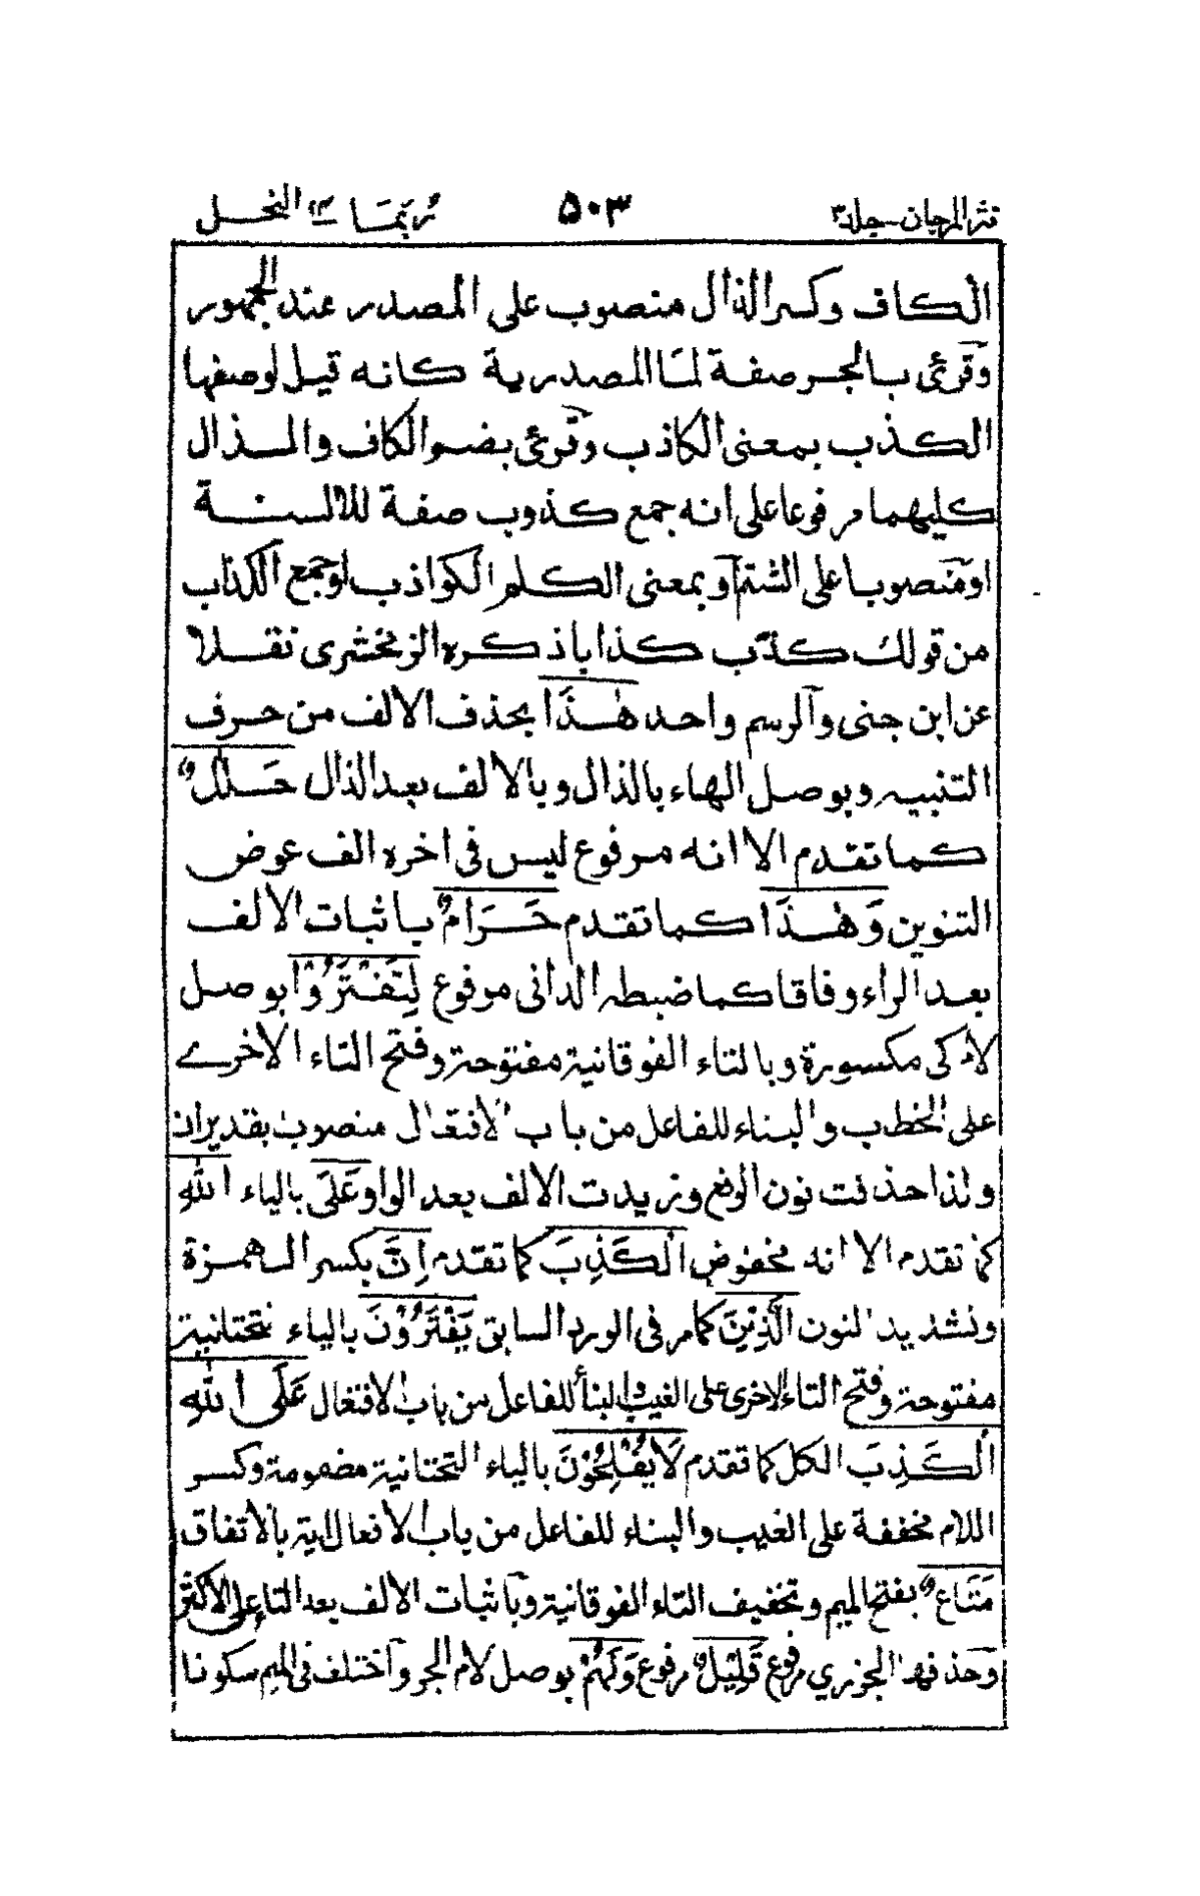 نثر المرجان۔جلد۳ ۵۰۳ رُبَمَا ۱۴ النحل
الكاف وكسر الذال منصوب على المصدر عند الجمهور
وقرئ بالجر صفة لما المصدرية كانه قيل لوصفها
الكذب بمعنى الكاذب وقرئ بضم الكاف والذال
كليهما مرفوعا على انه جمع كذوب صفة للالسنة
او منصوبا على الشتم او بمعنى الكلم الكواذب او جمع الكذاب
من قولك كذب كذابا ذكره الزمخشرى نقلا
عن ابن جنى والرسم واحد هٰذَا بحذف الالف من حرف
التنبيه وبوصل الهاء بالذال وبالالف بعد الذال حَلٰلٌ
كما تقدم الا انه مرفوع ليس فى اخره الف عوض
التنوين وَهٰذَا كما تقدم حَرَامٌ باثبات الالف
بعد الراء وفاقا كما ضبطه الدانى مرفوع لِتَفْتَرُوْا بوصل
لام كى مكسورة وبالتاء الفوقانية مفتوحة وفتح التاء الاخرے
على الخطاب والبناء للفاعل من باب الافتعال منصوب بتقديران
ولذا حذفت نون الرفع وزيدت الالف بعد الواو عَلَى بالياء اللهِ
كما تقدم الا انه مخفوض الْكَذِبَ كما تقدم اِنَّ بكسر الهمزة
وتشديد النون الَّذِيْنَ كما مر فى الورد السابق يَفْتَرُوْنَ بالياء التحتانية
مفتوحة وفتح التاء الاخرى على الغيب والبناء للفاعل من باب الافتعال عَلَى اللهِ
الْكَذِبَ الكل كما تقدم لَا يُفْلِحُوْنَ بالياء التحتانية مضمومة وكسر
اللام مخففة على الغيب والبناء للفاعل من باب الافعال اية بالاتفاق
مَتَاعٌ بفتح الميم وتخفيف التاء الفوقانية وباثبات الالف بعد التاء على الاكثر
وحذفها الجزري مرفوع قَلِيْلٌ مرفوع وَلَهُمْ بوصل لام الجر واختلف فى الميم سكونا